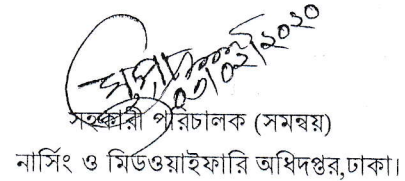 ০৩/০২/২০২০
সহকারী পরিচালক (সমন্বয়)
নার্সিং ও মিডওয়াইফারি অধিদপ্তর,ঢাকা।